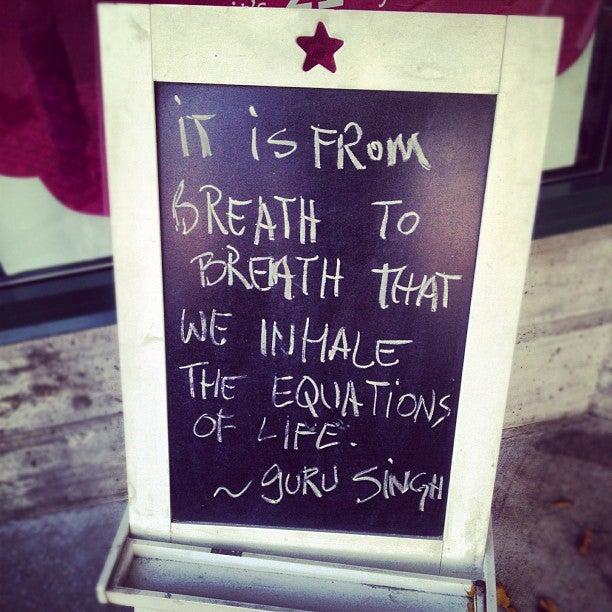 iT iS FROM
BREATH TO
BREATH THAT
WE INHALE
THE EQUATiONS
OF LIFE.
~ GURU SiNGH